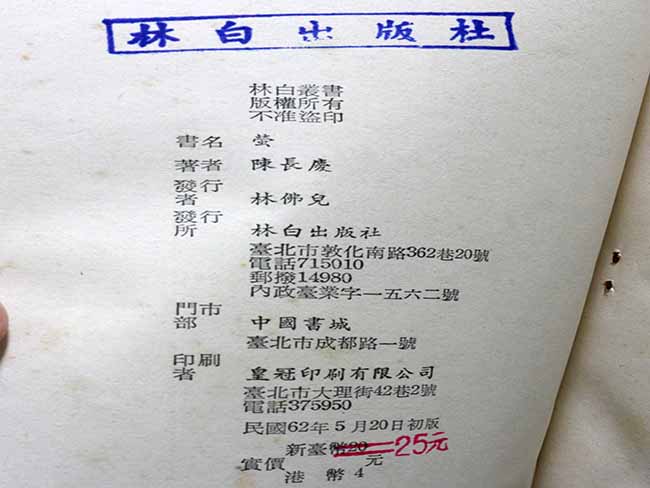 林白出版社
林白叢書
版權所有
不准盜印
書名 螢
著者 陳長慶
發行者 林佛兒
發行所 林白出版社
臺北市敦化南路362巷20號
電話715010
郵撥14980
內政臺業字一五六二號
門市部 中國書城
臺北市成都路一號
印刷者 皇冠印刷有限公司
臺北市大理街42巷2號
電話375950
民國62年5月20日初版
新臺幣20 25元
實價 元
港幣4